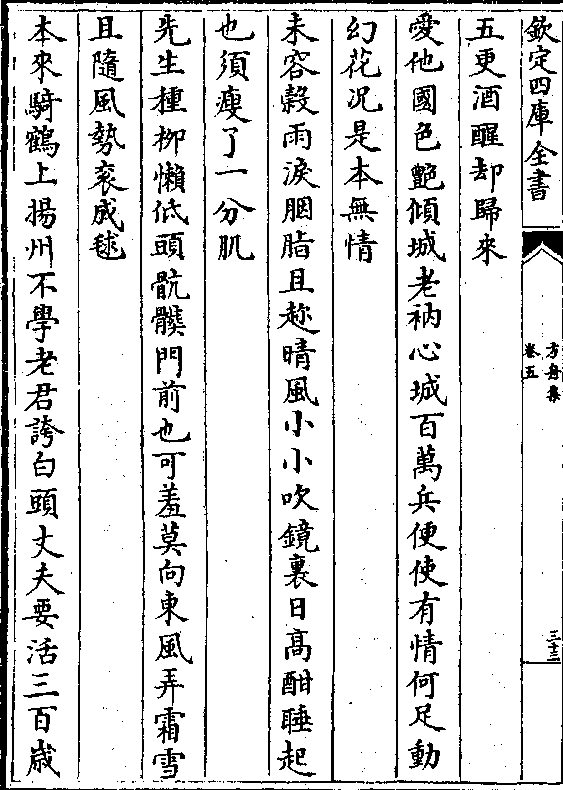 欽定四庫全書
方舟集
卷五
三十三
五更酒醒却歸來
愛他國色艷傾城老衲心城百萬兵便使有情何足動
幻花况是本無情
未容穀雨淚胭脂且趂晴風小小吹鏡裏日髙酣睡起
也須瘦了一分肌
先生種柳懶低頭骯髒門前也可羞莫向東風弄霜雪
且隨風勢衮成毬
本來騎鶴上揚州不學老君誇白頭丈夫要活三百嵗